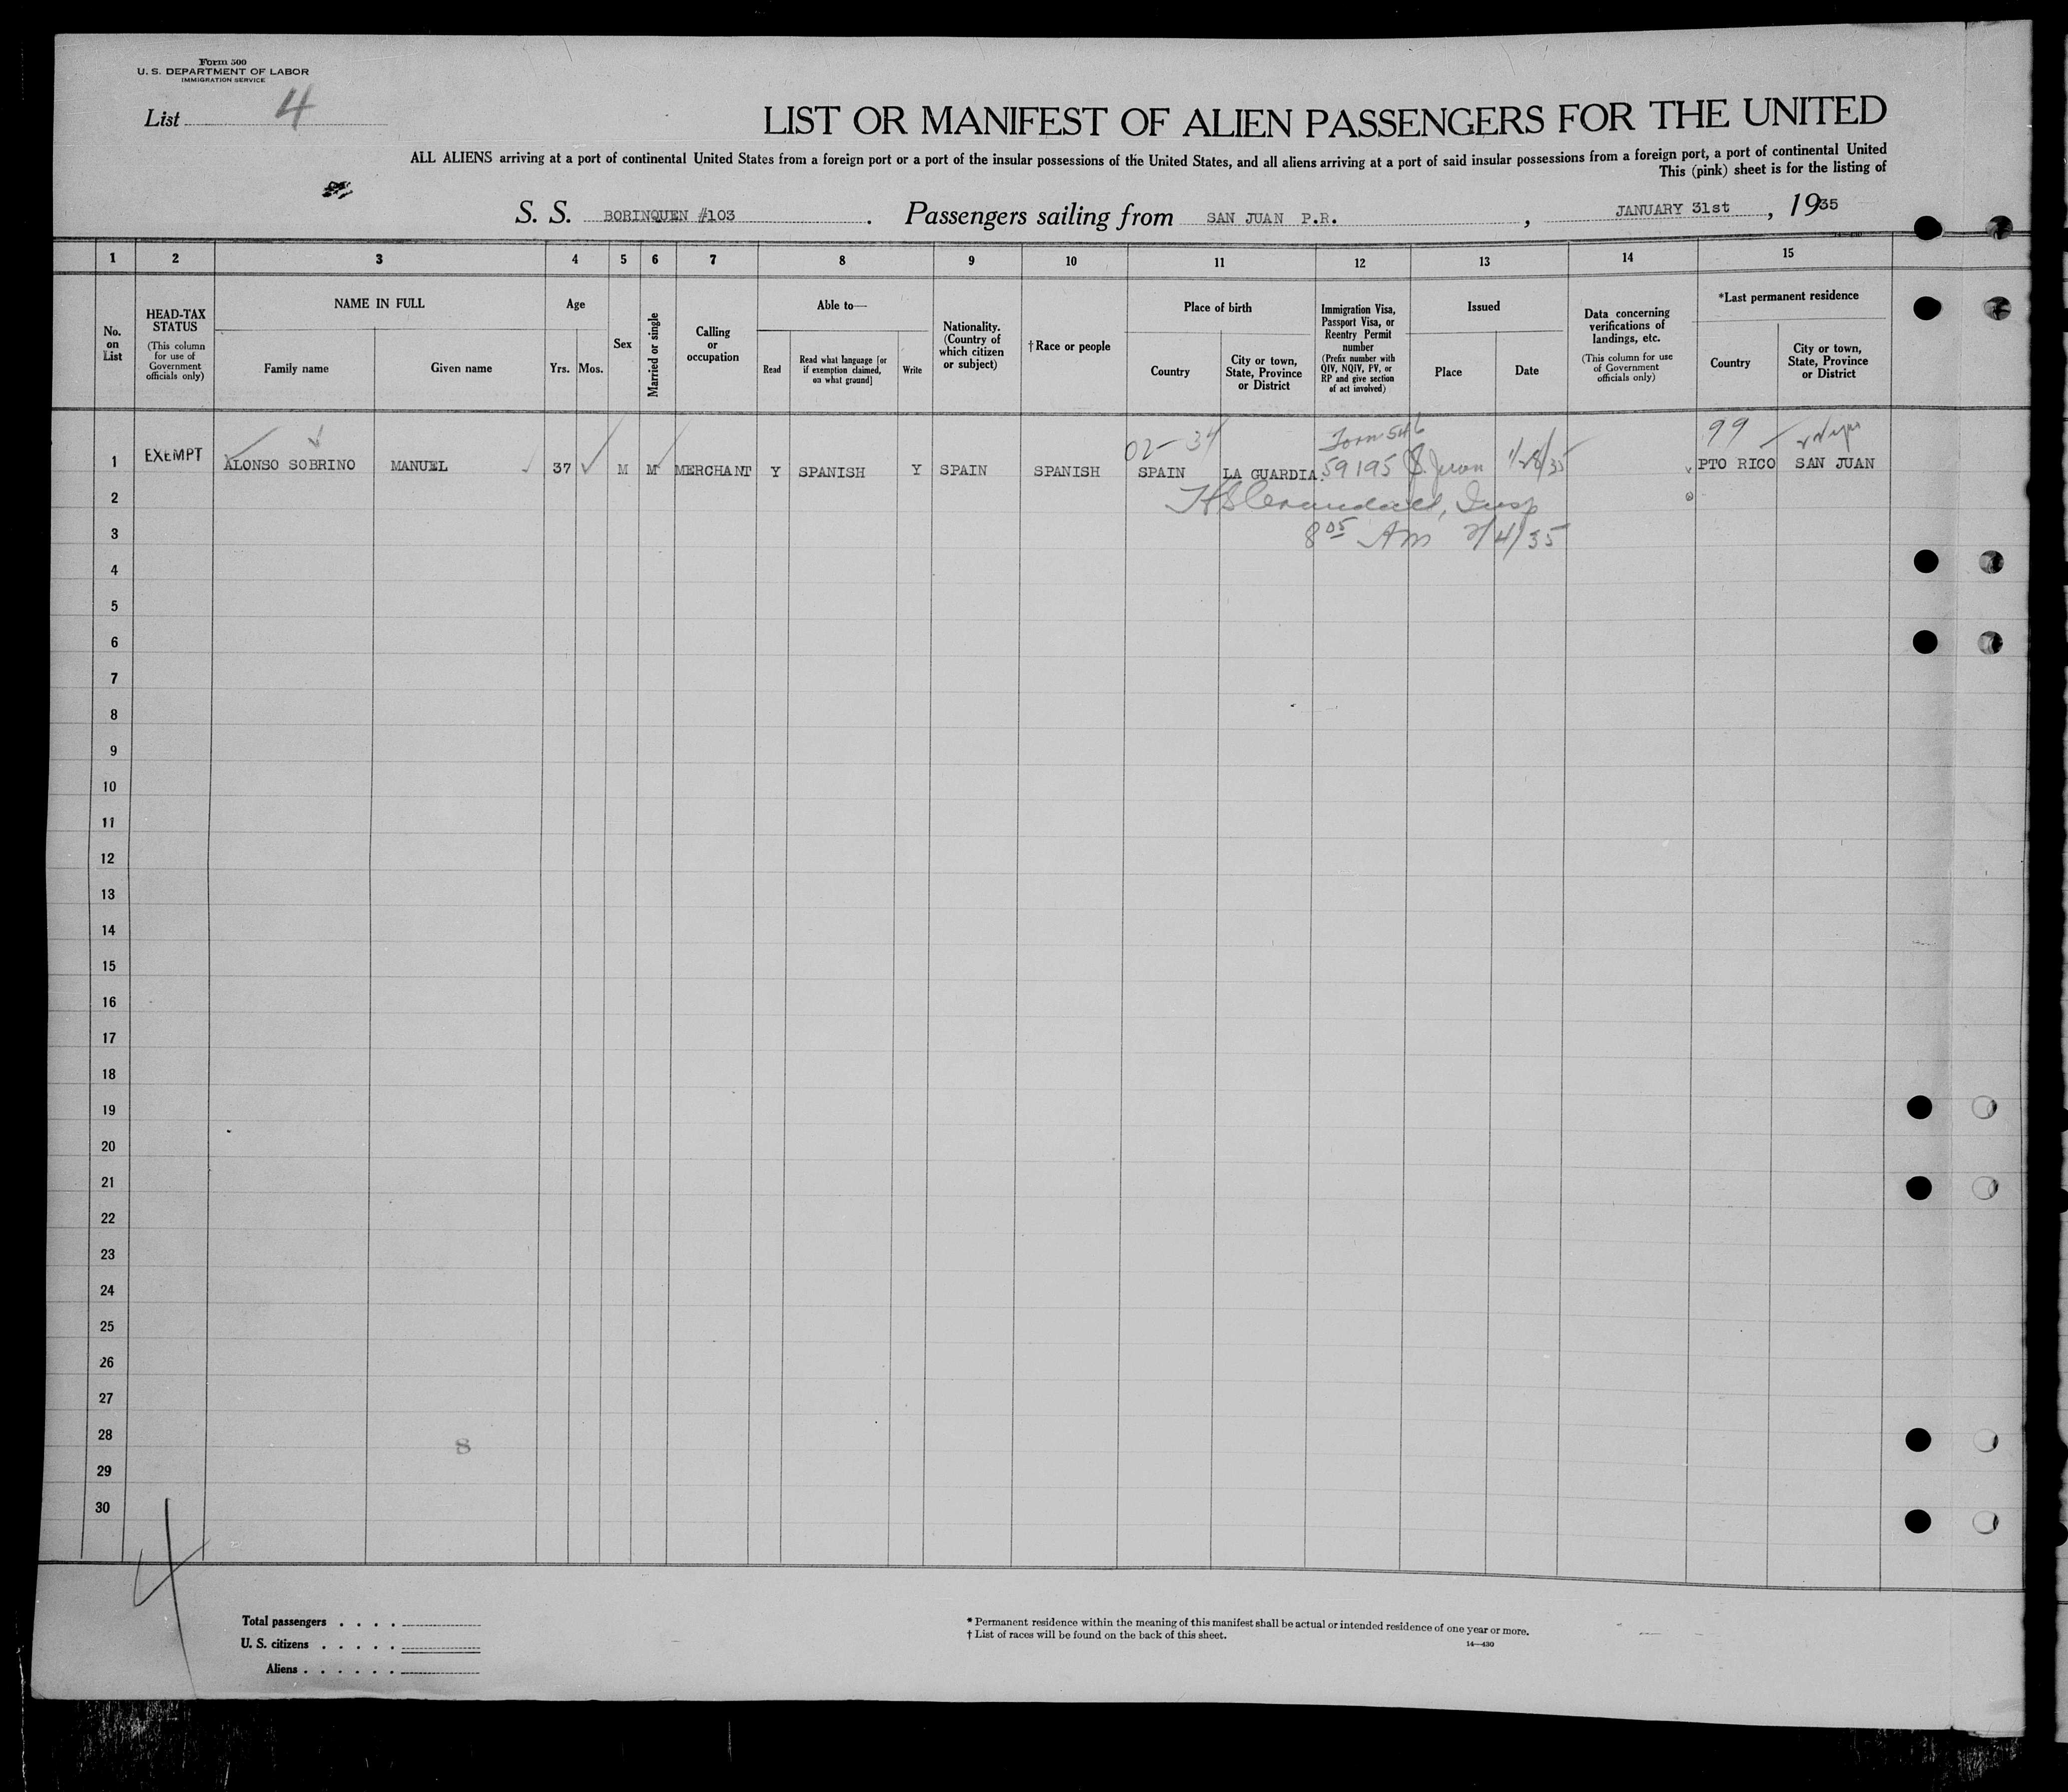 Form 500
U. S. DEPARTMENT OF LABOR
IMMIGRATION SERVICE
List 4
LIST OR MANIFEST OF ALIEN PASSENGERS FOR THE UNITED
ALL ALIENS arriving at a port of continental United States from a foreign port or a port of the insular possessions of the United States, and all aliens arriving at a port of said insular possessions from a foreign port, a port of continental United
This (pink) sheet is for the listing of
S. S. BORINQUEN #103. Passengers sailing from SAN JUAN P.R., JANUARY 31st, 1935
1 2 3 4 5 6 7 8 9 10 11 12 13 14 15
No. on List
HEAD-TAX STATUS
(This column for use of Government officials only)
NAME IN FULL
Family name
Given name
Age
Yrs. Mos.
Sex
Married or single
Calling or occupation
Able to—
Read
Read what language [or if exemption claimed, on what ground]
Write
Nationality. (Country of which citizen or subject)
†Race or people
Place of birth
Country
City or town, State, Province or District
Immigration Visa, Passport Visa, or Reentry Permit number
(Prefix number with QIV, NQIV, PV, or RP and give section of act involved)
Issued
Place
Date
Data concerning verifications of landings, etc.
(This column for use of Government officials only)
*Last permanent residence
Country
City or town, State, Province or District
02-34 Form 546 99
1 EXEMPT ALONSO SOBRINO MANUEL 37 M M MERCHANT Y SPANISH Y SPAIN SPANISH SPAIN LA GUARDIA. 59195 S. Juan 1/28/35 PTO RICO SAN JUAN
2 Insp
3 8 05 Am 2/4/35
4
5
6
7
8
9
10
11
12
13
14
15
16
17
18
19
20
21
22
23
24
25
26
27
28 8
29
30
4
Total passengers . . . .
U. S. citizens . . . . .
Aliens . . . . . .
* Permanent residence within the meaning of this manifest shall be actual or intended residence of one year or more.
† List of races will be found on the back of this sheet.
14—430